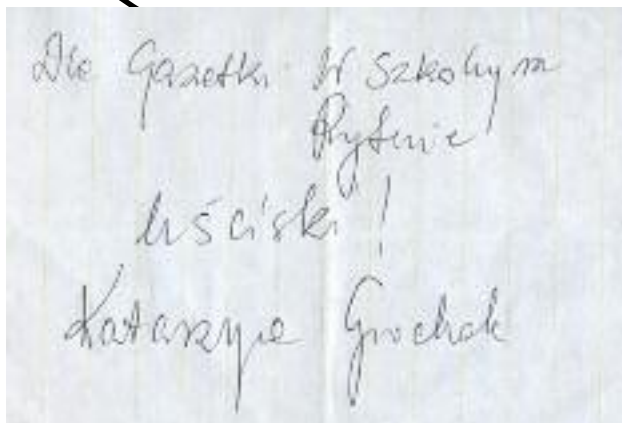 Dla Gazetki W Szkolnym
Rytmie
Uściski!
Katarzyna Grochola